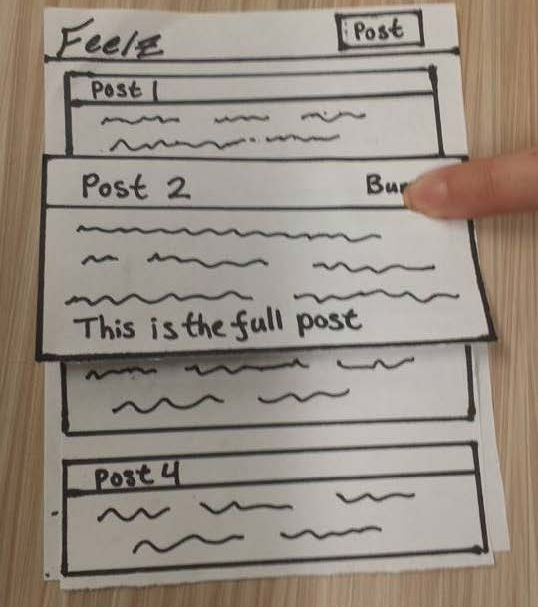 Feelz
Post
Post 1
Post 2
This is the full post
Post 4